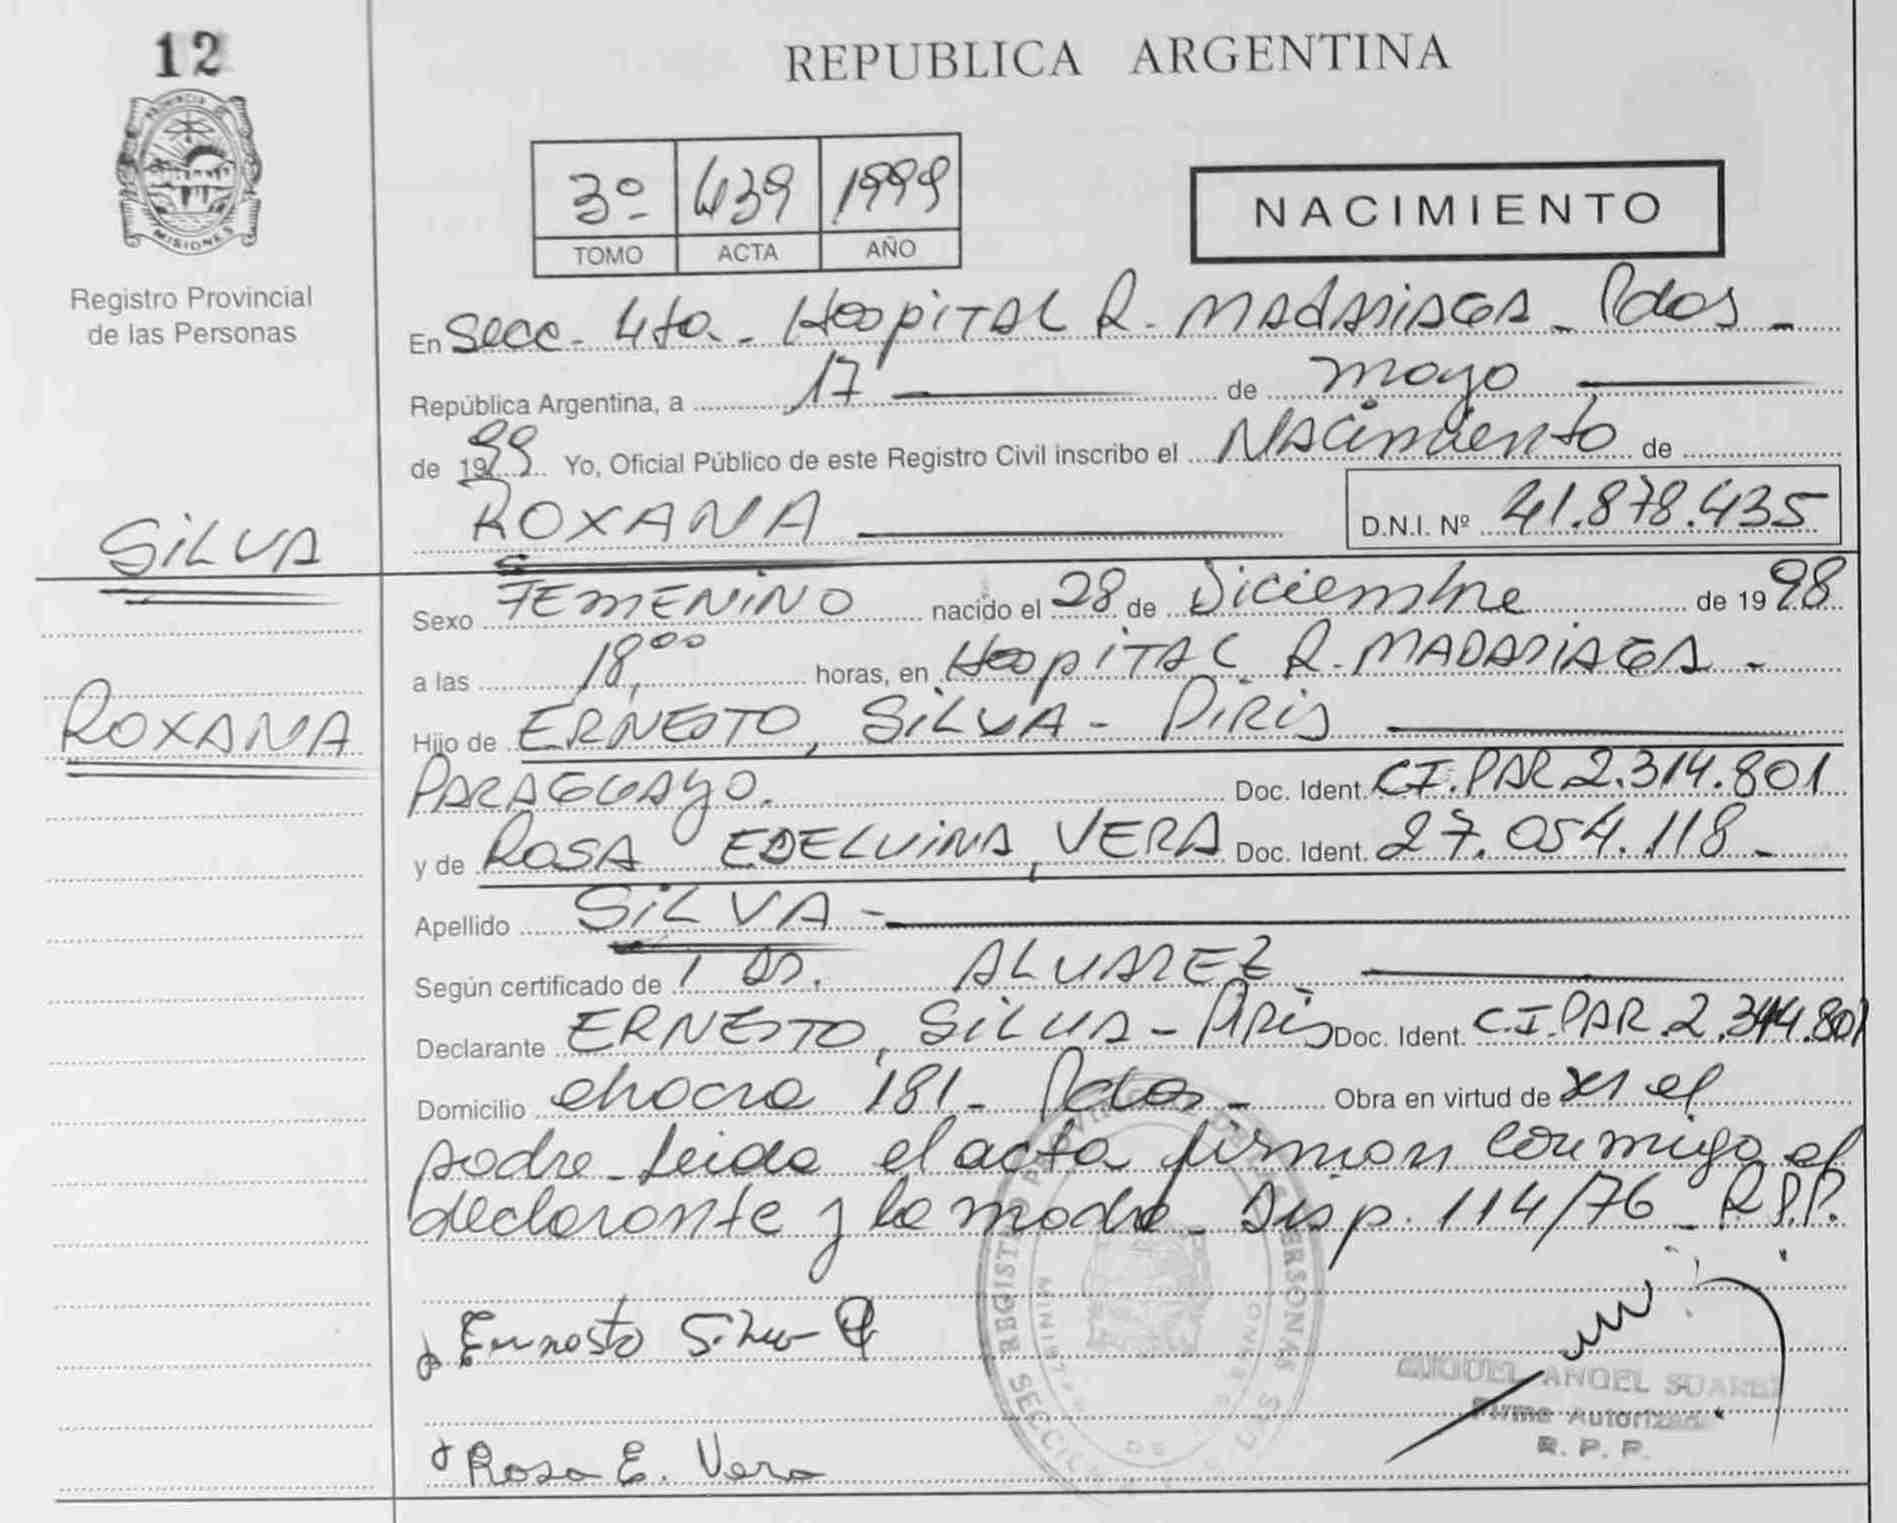 12
REPUBLICA ARGENTINA
PROVINCIA DE
MISIONES
Registro Provincial
de las Personas
3º 439 1999
TOMO ACTA AÑO
NACIMIENTO
En Secc. 4ta. Hospital R. MADARIAGA. Pdas.
República Argentina, a 17 de mayo
de 1999 Yo, Oficial Público de este Registro Civil inscribo el Nacimiento de
ROXANA D.N.I. Nº 41.878.435
SILVA
ROXANA
Sexo FEMENINO nacido el 28 de Diciembre de 1998
a las 18,00 horas, en Hospital R. MADARIAGA.
Hijo de ERNESTO, SILVA - PIRIS
PARAGUAYO. Doc. Ident. CI. PAR 2.314.801
y de ROSA EDELVINA, VERA Doc. Ident. 27.054.118.
Apellido SILVA
Según certificado de 1 Dr. ALVAREZ
Declarante ERNESTO, SILVA - PIRIS Doc. Ident. C.I. PAR. 2.314.801
Domicilio chacra 181 - Pdas - Obra en virtud de el
padre. Leida el acta firman conmigo el
declarante y la madre. Disp. 114/76 - R.P.P.
Ernesto Silva P
Rosa E. Vera
REGISTRO PROVINCIAL DE LAS PERSONAS
MIGUEL ANGEL SUAREZ
Firma Autorizada
R. P. P.